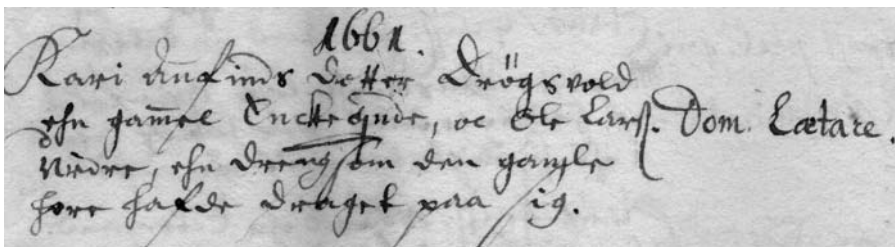 1661.
Kari Anfinds dotter Drögsvold
ehn gammel Encke qvinde, oc Ole Larss. Dom. Lætare.
Nedre, ehn dreng som den gamle
hore hafde draget paa sig.